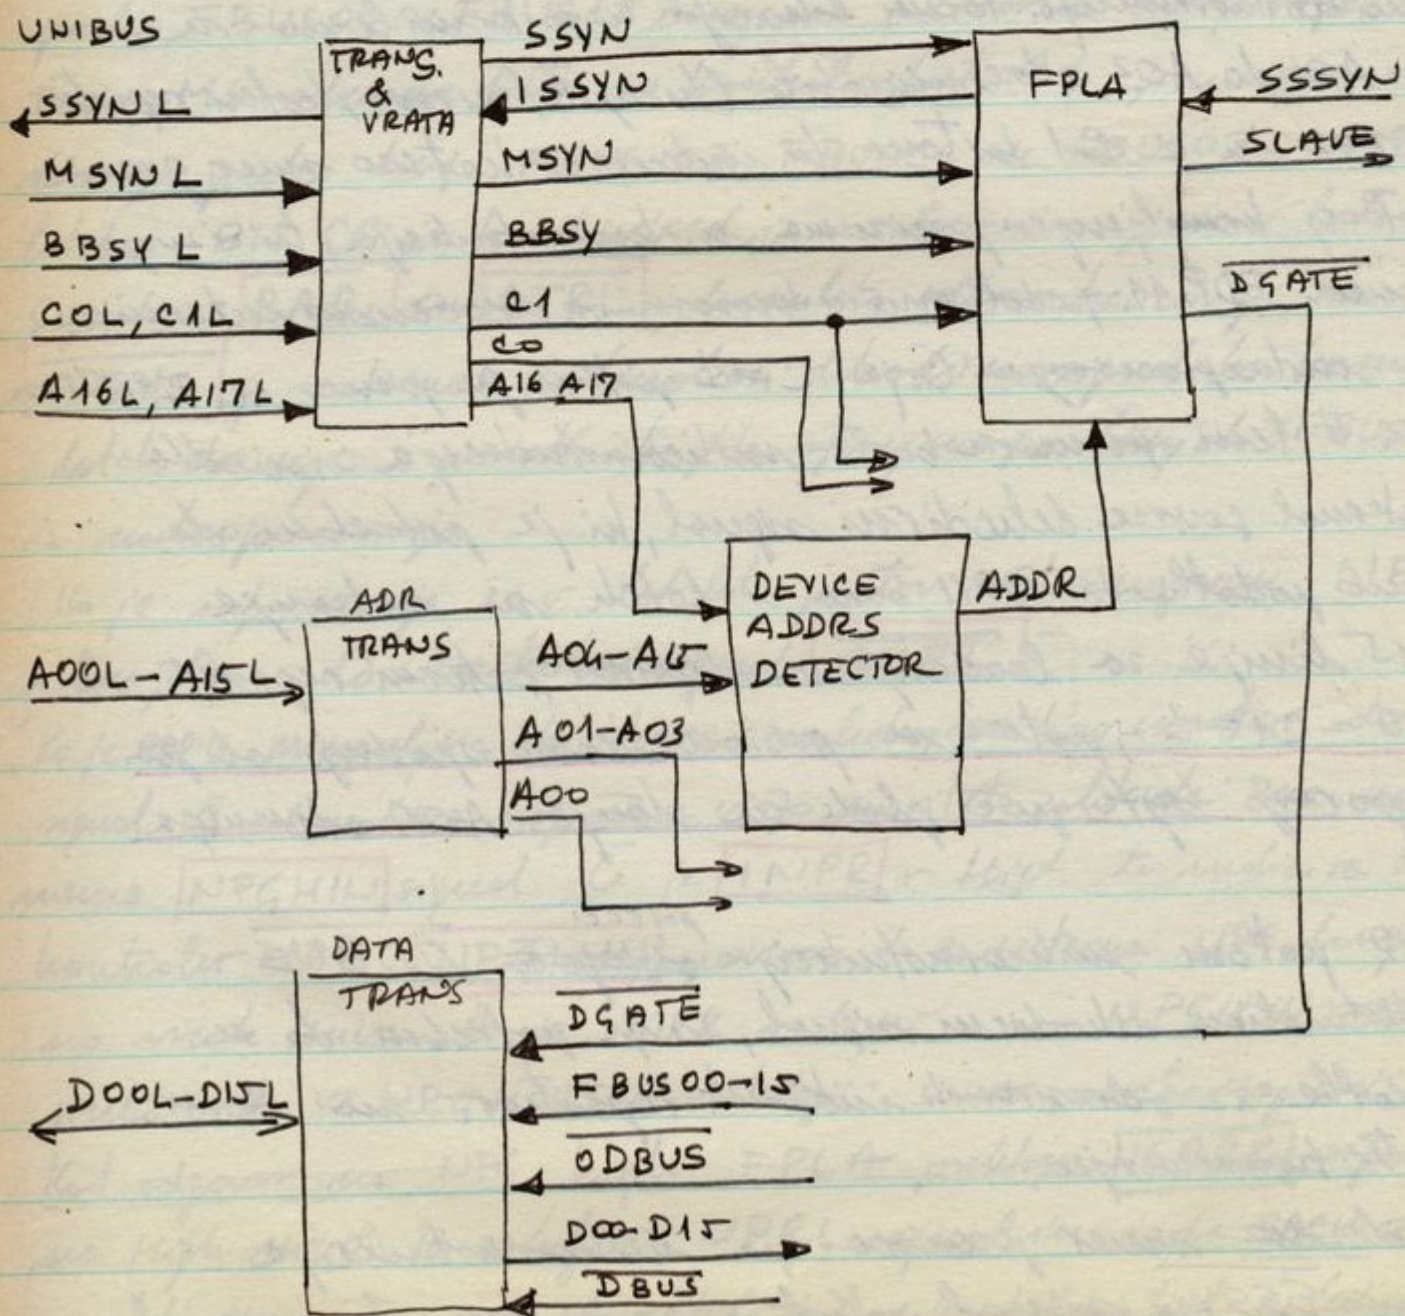 UNIBUS
SSYN L
MSYN L
BBSY L
C0L, C1L
A16L, A17L
TRANS.
&
VRATA
SSYN
ISSYN
MSYN
BBSY
C1
C0
A16 A17
FPLA
SSSYN
SLAVE
DGATE
ADR
TRANS
A00L-A15L
A04-A15
A01-A03
A00
DEVICE
ADDRS
DETECTOR
ADDR
DATA
TRANS
D00L-D15L
DGATE
FBUS 00-15
ODBUS
D00-D15
DBUS